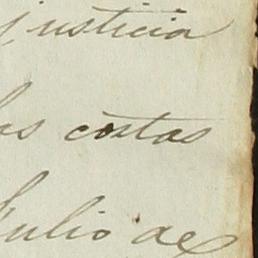 justicia
las costas
Julio de